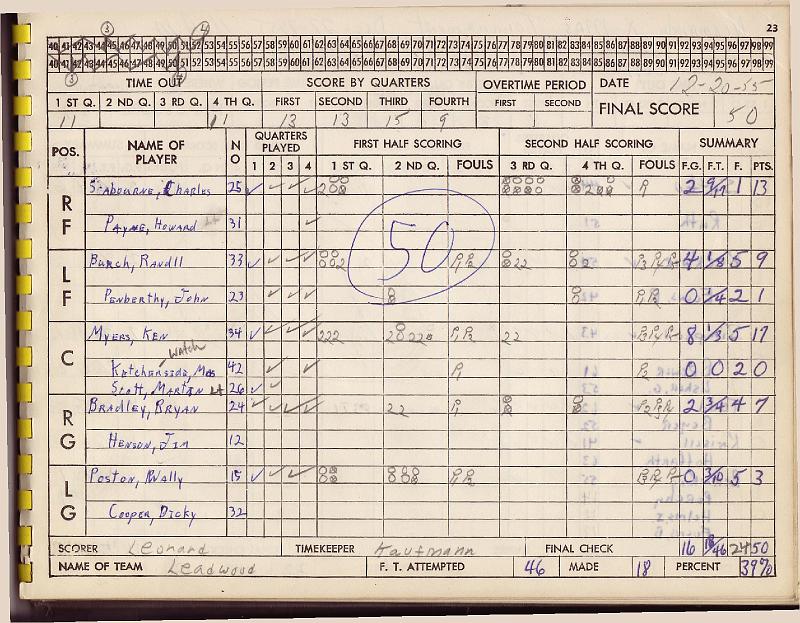 23
③ ④
40 41 42 43 44 45 46 47 48 49 50 51 52 53 54 55 56 57 58 59 60 61 62 63 64 65 66 67 68 69 70 71 72 73 74 75 76 77 78 79 80 81 82 83 84 85 86 87 88 89 90 91 92 93 94 95 96 97 98 99
40 41 42 43 44 45 46 47 48 49 50 51 52 53 54 55 56 57 58 59 60 61 62 63 64 65 66 67 68 69 70 71 72 73 74 75 76 77 78 79 80 81 82 83 84 85 86 87 88 89 90 91 92 93 94 95 96 97 98 99
TIME OUT SCORE BY QUARTERS OVERTIME PERIOD DATE 12-20-55
1 ST Q. 2 ND Q. 3 RD Q. 4 TH Q. FIRST SECOND THIRD FOURTH FIRST SECOND FINAL SCORE 50
11 11 13 13 15 9
POS. NAME OF PLAYER NO QUARTERS PLAYED FIRST HALF SCORING SECOND HALF SCORING SUMMARY
1 2 3 4 1 ST Q. 2 ND Q. FOULS 3 RD Q. 4 TH Q. FOULS F.G. F.T. F. PTS.
RF Charles 25 2 9/17 1 13
Payne, Howard 31
50
LF Burch, Randll 33 4 1/8 5 9
Penberthy, John 23 0 1/4 2 1
C Myers, Ken 34 222 22 8 1/3 5 17
Watch
42 0 0 2 0
Scott, Martan 26
RG Bradley, Bryan 24 22 2 3/4 4 7
Henson, Jim 12
LG Poston, Wally 15 0 3/10 5 3
Cooper, Dicky 32
SCORER Leonard TIMEKEEPER Kaufmann FINAL CHECK 16 18/46 24 50
NAME OF TEAM Leadwood F. T. ATTEMPTED 46 MADE 18 PERCENT 39%